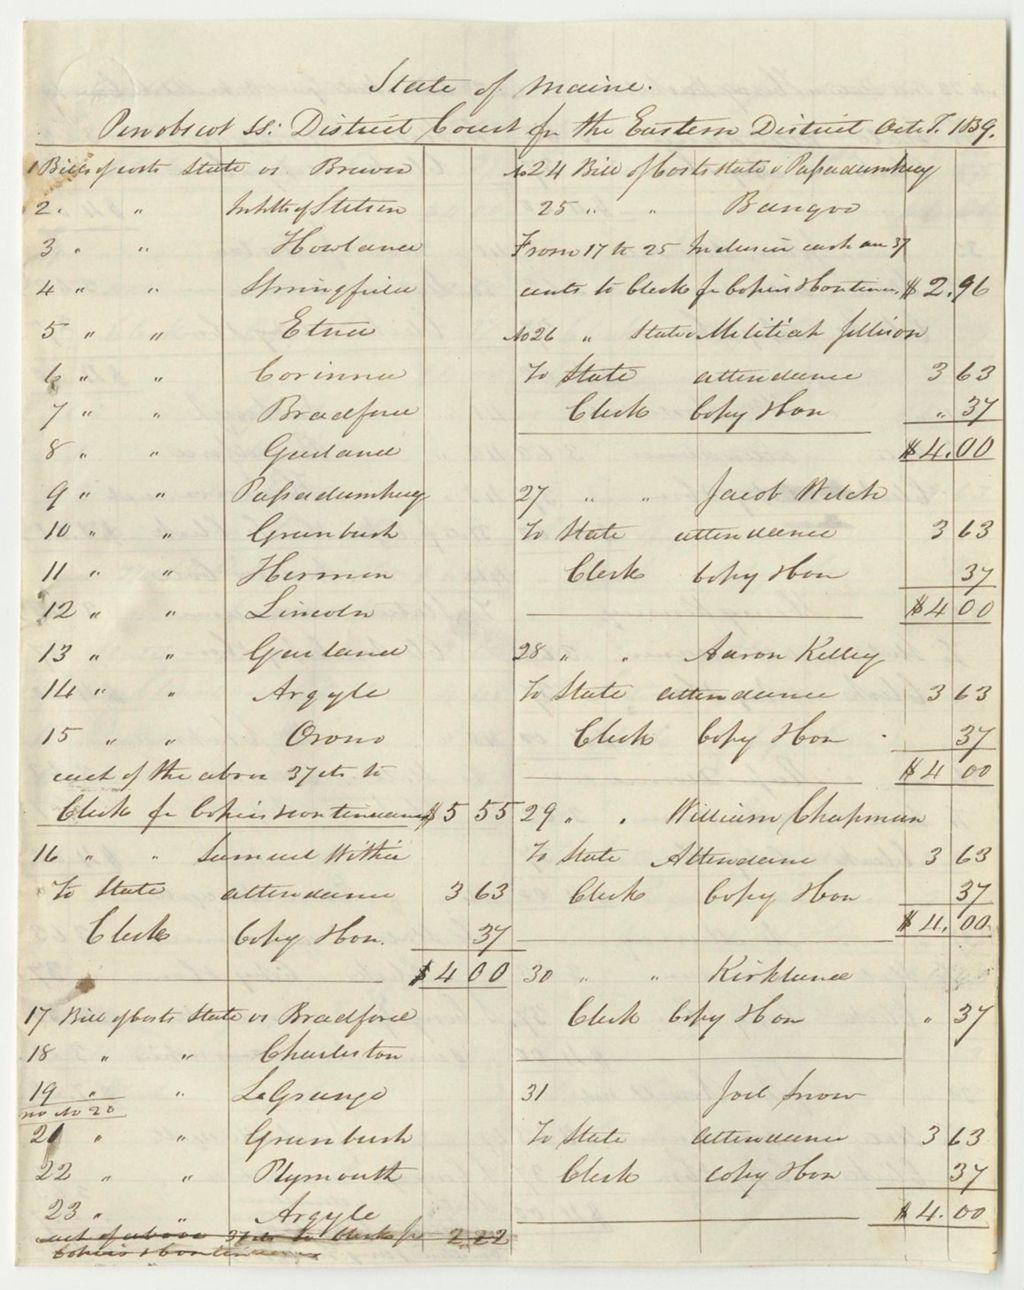 State of Maine.
Penobscot ss: District Court for the Eastern District Oct. T. 1839.
1 Bills of costs State vs Brewer
2. " Inhbts of Stetson
3 " " Howland
4 " " Springfield
5 " " Etna
6 " " Corinna
7 " " Bradford
8 " " Garland
9 " " Passadumkeag
10 " " Greenbush
11 " " Hermon
12 " " Lincoln
13 " " Garland
14 " " Argyle
15 " " Orono
each of the above 37 cts to
Clerk for Copies & continuance $5 55
16 " " Samuel Withee
To State attendance 3 63
Clerk Copy & Con. 37
$4 00
17 Bill of Costs State vs Bradford
18 " " Charleston
19 " " LaGrange
no No 20
21 " " Greenbush
22 " " Plymouth
23 " " Argyle
each of above 37 cts to Clerk for 2.22
Copies & continuance
No 24 Bill of Costs State v Passadumkeag
25 " " Bangor
From 17 to 25 Inclusive each an 37
cents to Clerk for Copies & Continu. $2.96
No 26 " State v Melitiah Jellison
To State attendance 3 63
Clerk Copy & Con " 37
$4.00
27 " " Jacob Welch
To State attendance 3 63
Clerk Copy & Con 37
$4 00
28 " " Aaron Kelley
To State attendance 3 63
Clerk Copy & Con 37
$4 00
29 " " William Chapman
To State Attendance 3 63
Clerk Copy & Con 37
$4.00
30 " " Kirkland
Clerk Copy & Con " 37
31 Joel Snow
To State attendance 3 63
Clerk copy & Con 37
$4.00